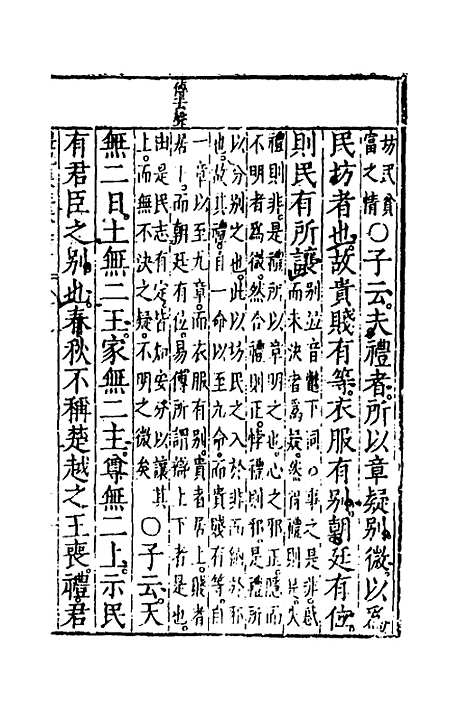 傳士經
坊民貧
富之情〇子云。夫禮者。所以章疑別微。以爲
民坊者也。故貴賤有等。衣服有別。朝廷有位。
則民有所讓。別並音
鼈下同〇事之是非惑
而未決者爲疑。然得禮則是。失
禮則非。是禮所以章明之也。心之邪正。隱而
不明者爲微。然合禮則正。悖禮則邪。是禮所
以分別之也。此以坊民之入於非而納於邪
也。故其禮。自一命以至九命。而貴賤有等。自
一章以至九章。而衣服有別。貴者居上。賤者
居下。而朝廷有位。易傳所謂辯上下者是也。
由是民志有定。皆知安分以讓其
上。而無不決之疑。不明之微矣〇子云。天
無二日。土無二王。家無二主。尊無二上。示民
有君臣之別也。春秋不稱楚越之王喪。禮。君